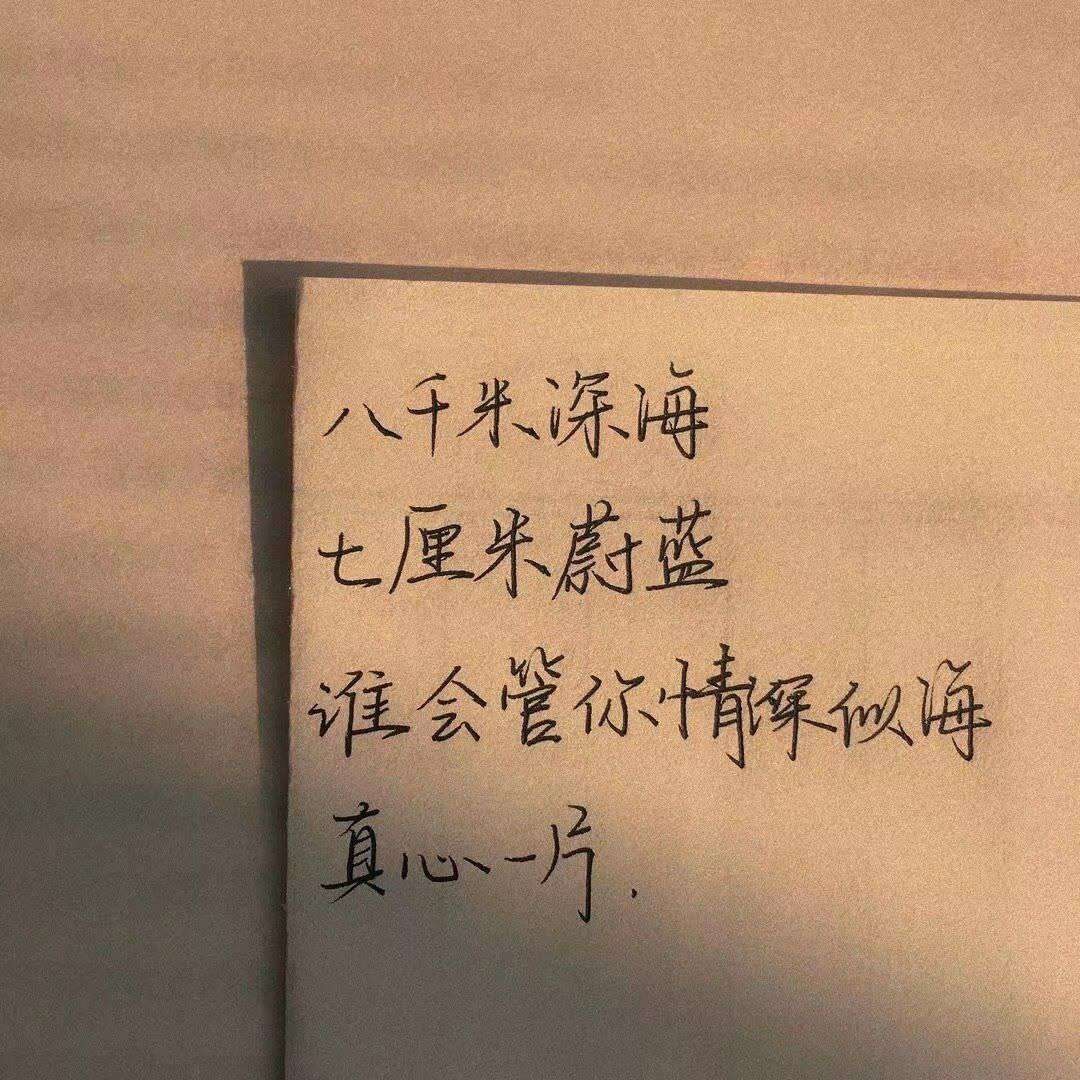 八千米深海
七厘米蔚蓝
谁会管你情深似海
真心一片.